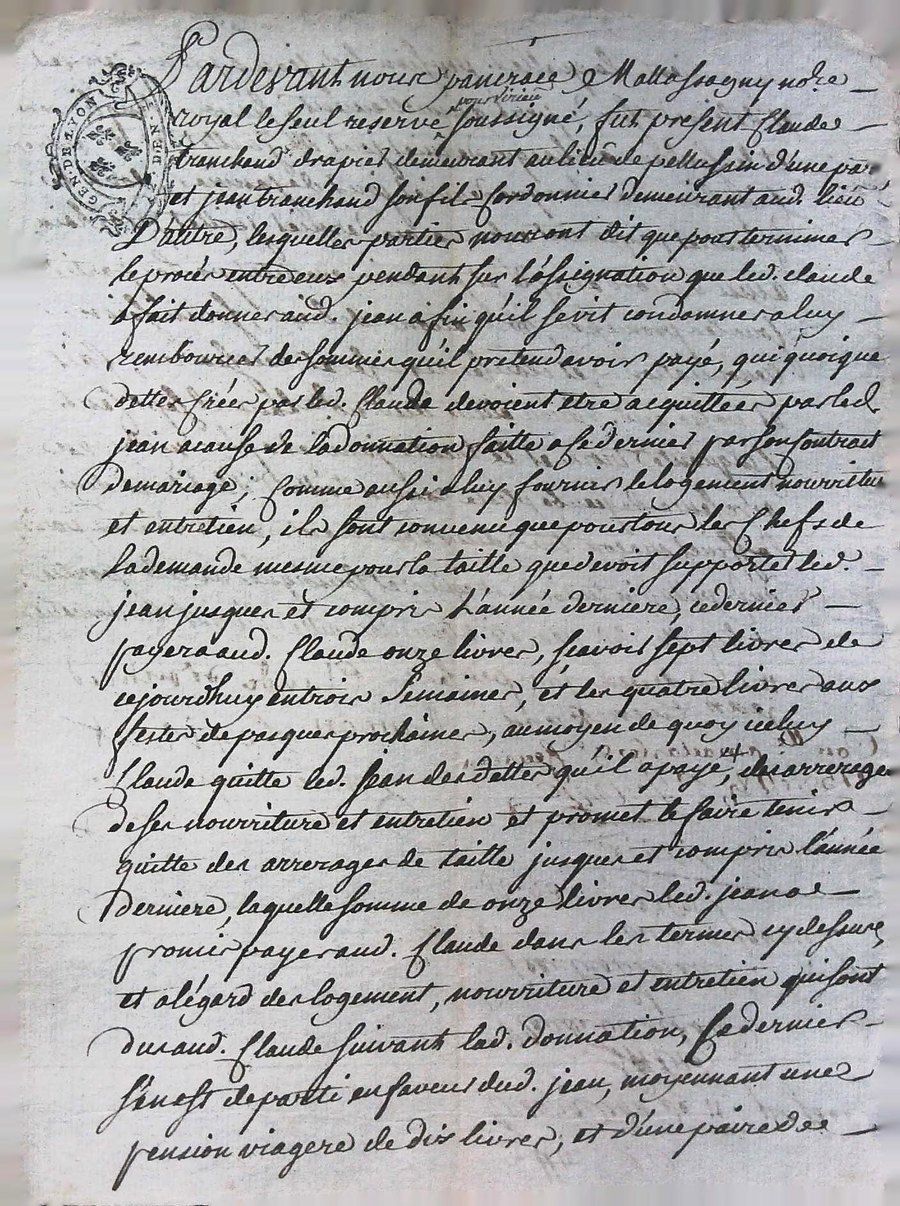 GEN. DE LYON
Pardevant nous pancrace Mattassagny no.re
pour virieu
royal le seul reservé soussigné, fut present Claude
tranchand drapier demeurant au lieu de pellussin d'une par
et jean tranchand son fils Cordonnier demeurant aud. lieu
D'autre, lesquelles parties nous ont dit que pour terminer
le procés entre eux pendant sur l'assignation que led. claude
a fait donner aud. jean afin qu'il se vit condamner a luy
rembourcer des sommes qu'il pretend avoir payé, qui quoique
dettes Créés par led. Claude devoient etre acquittées par led.
jean acause de la donnation faitte a Ce dernier par son Contrait
de mariage; Comme aussi a luy fournir le logement nourriture
et entretien, ils sont convenu que pour tous les Chefs de
la demande mesme pour la taille que devoit supporter led.
jean jusques et compris L'année derniere, ce dernier
payera aud. Claude onze livres, scavoir sept livres de
cejourdhuy en trois semaines, et les quatre livres aux
festes de pasques prochaines, au moyen de quoy iceluy
Claude quitte led. Jean des dettes qu'il a payé +, des arrerages
de ses nourriture et entretien et promet le faire tenir
quitte des arrerages de taille jusques et compris l'année
derniere, laquelle somme de onze livres led. jean a
promis payer aud. Claude dans les termes cy dessus,
et a l'égard des logement, nourriture et entretien qui sont
dus aud. Claude suivant lad. donnation, Ce dernier
s'en est departi en faveur dud. jean, moyennant une
pension viagere de dix livres, et d'une paire de